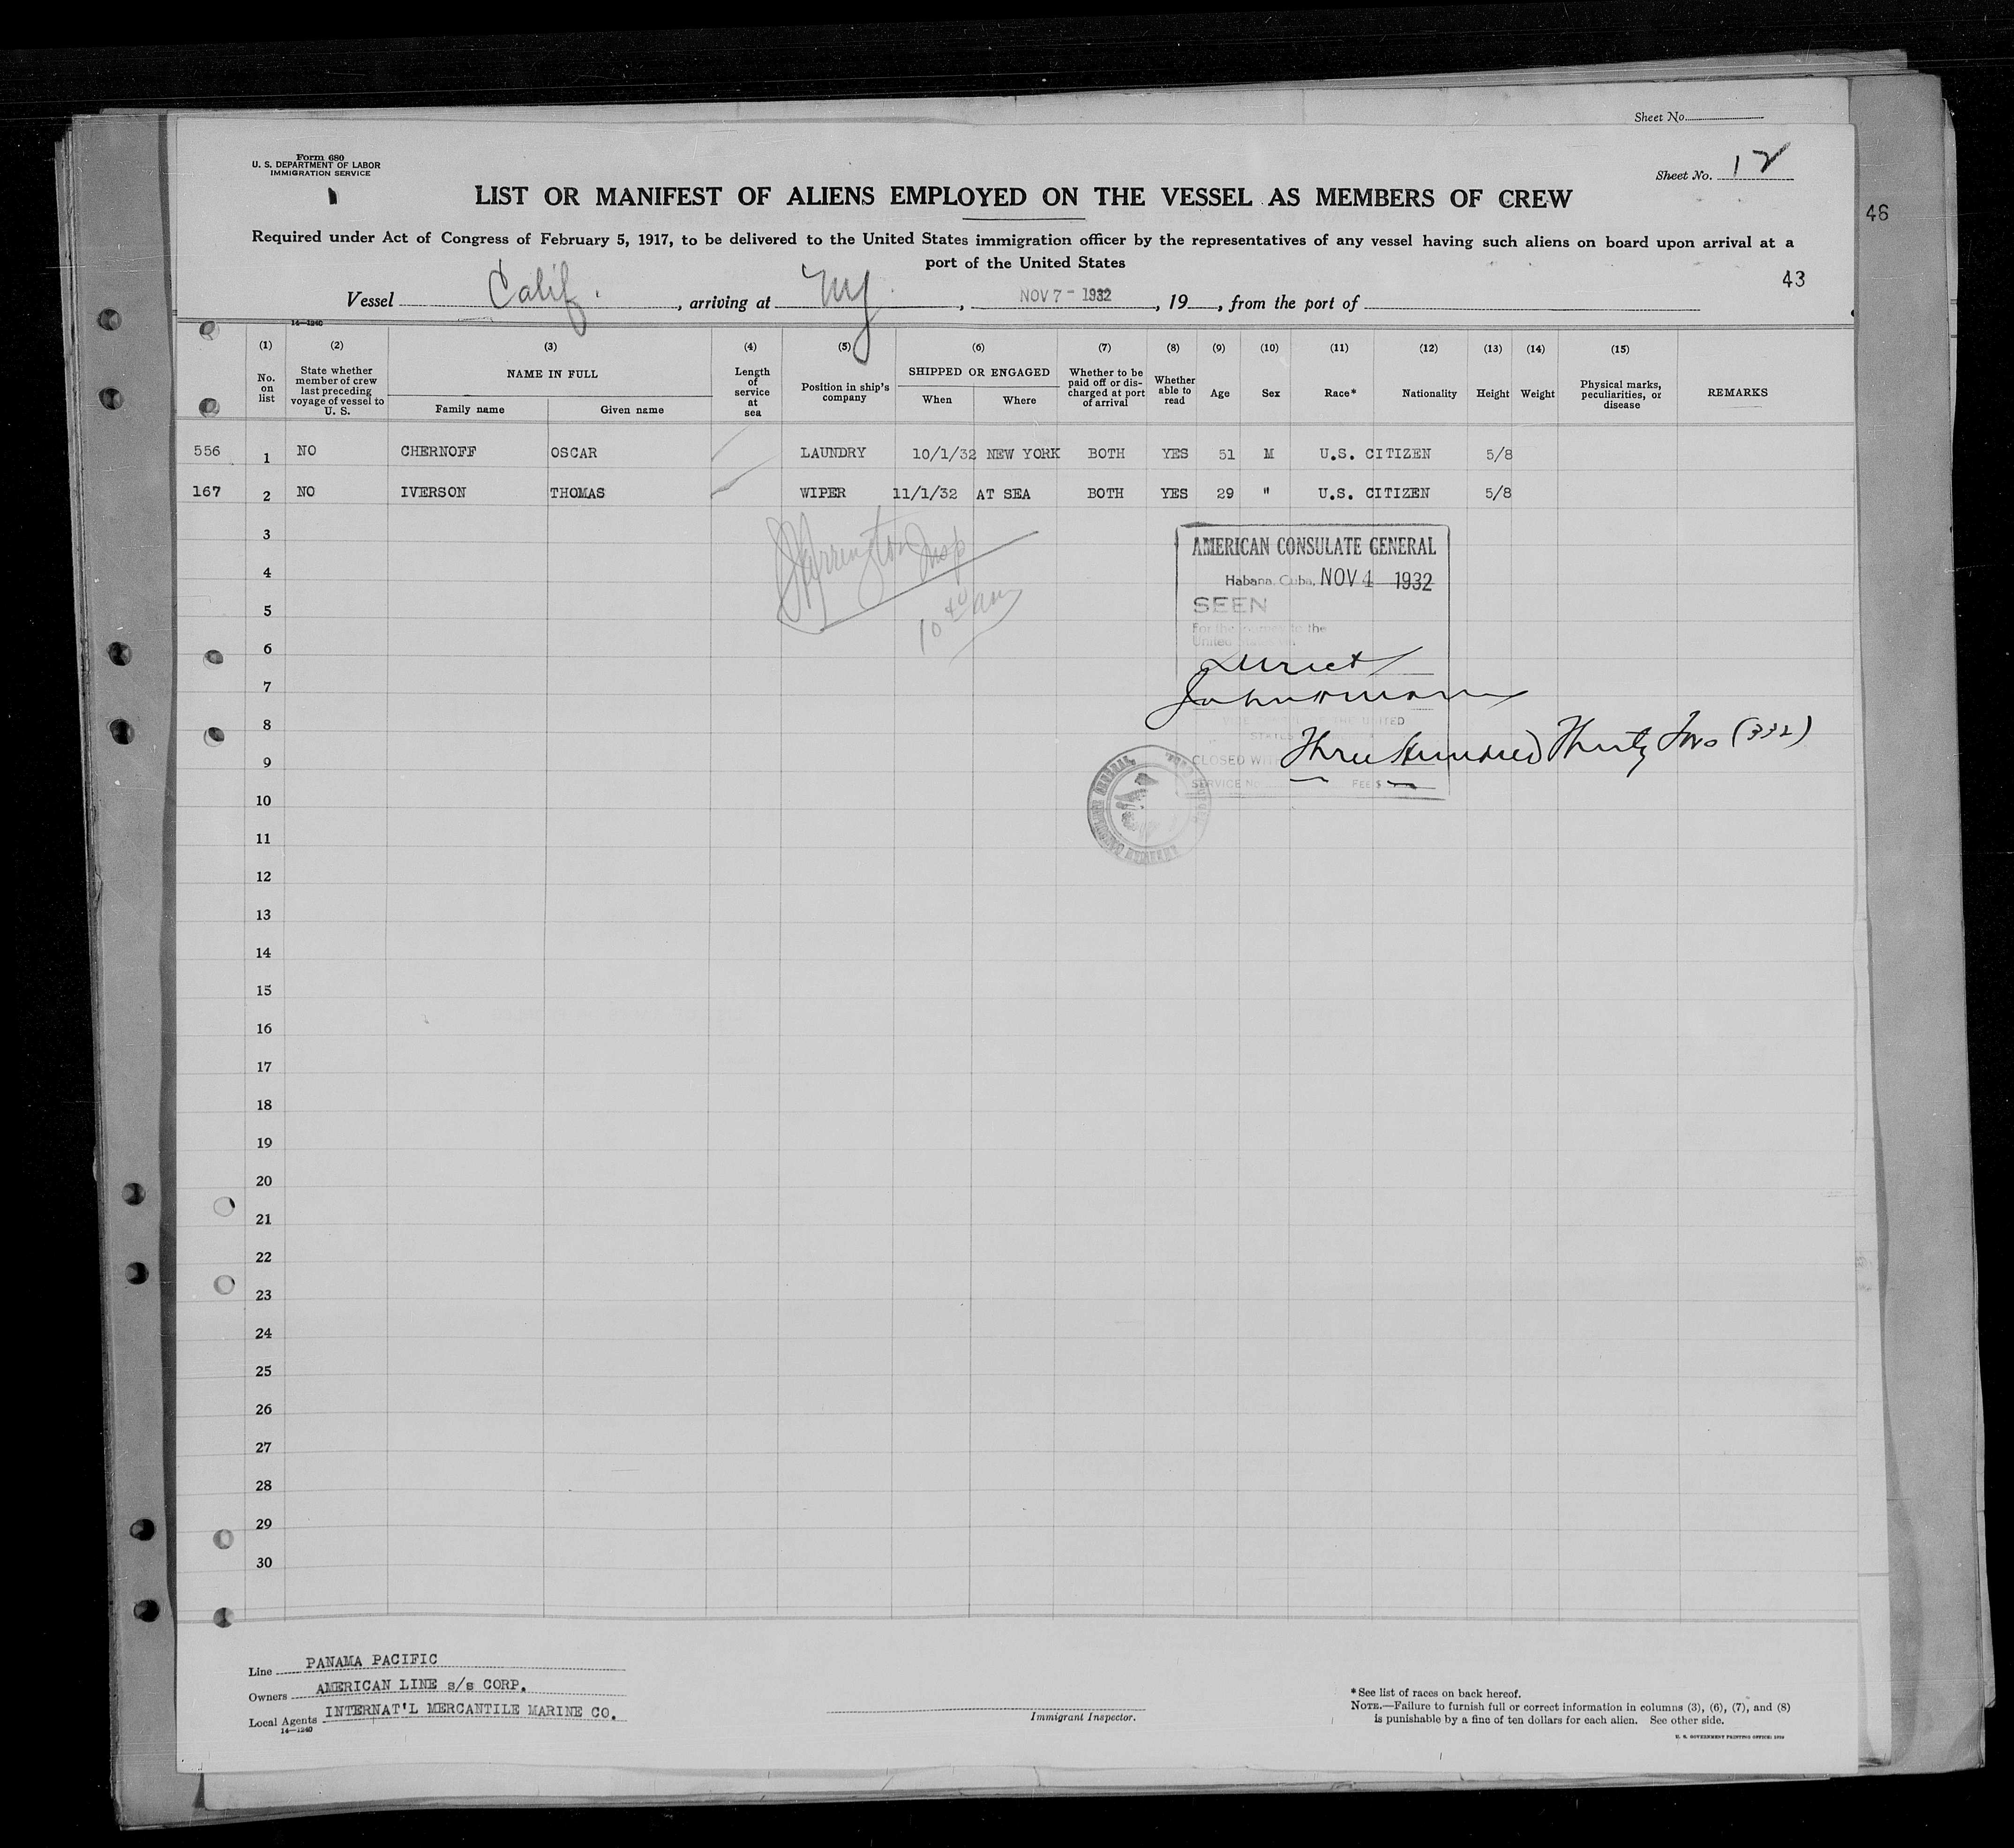 Sheet No.
Form 680
U. S. DEPARTMENT OF LABOR
IMMIGRATION SERVICE
Sheet No. 12
LIST OR MANIFEST OF ALIENS EMPLOYED ON THE VESSEL AS MEMBERS OF CREW
46
Required under Act of Congress of February 5, 1917, to be delivered to the United States immigration officer by the representatives of any vessel having such aliens on board upon arrival at a
port of the United States
43
Vessel Calif. , arriving at NY , NOV 7 - 1932 , 19 , from the port of
14—1240
(1) (2) (3) (4) (5) (6) (7) (8) (9) (10) (11) (12) (13) (14) (15)
No. on list State whether member of crew last preceding voyage of vessel to U. S. NAME IN FULL Family name Given name Length of service at sea Position in ship's company SHIPPED OR ENGAGED When Where Whether to be paid off or discharged at port of arrival Whether able to read Age Sex Race* Nationality Height Weight Physical marks, peculiarities, or disease REMARKS
556 1 NO CHERNOFF OSCAR LAUNDRY 10/1/32 NEW YORK BOTH YES 51 M U.S. CITIZEN 5/8
167 2 NO IVERSON THOMAS WIPER 11/1/32 AT SEA BOTH YES 29 " U.S. CITIZEN 5/8
3
4
5
6
7
8
9
10
11
12
13
14
15
16
17
18
19
20
21
22
23
24
25
26
27
28
29
30
Insp
10 40 am
AMERICAN CONSULATE GENERAL
Habana, Cuba, NOV 4 1932
SEEN
For the journey to the
United States
Direct
Three Hundred Thirty Two (332)
SERVICE No. FEE $
Line PANAMA PACIFIC
Owners AMERICAN LINE s/s CORP.
Local Agents INTERNAT'L MERCANTILE MARINE CO.
14—1240
Immigrant Inspector.
*See list of races on back hereof.
NOTE.—Failure to furnish full or correct information in columns (3), (6), (7), and (8)
is punishable by a fine of ten dollars for each alien. See other side.